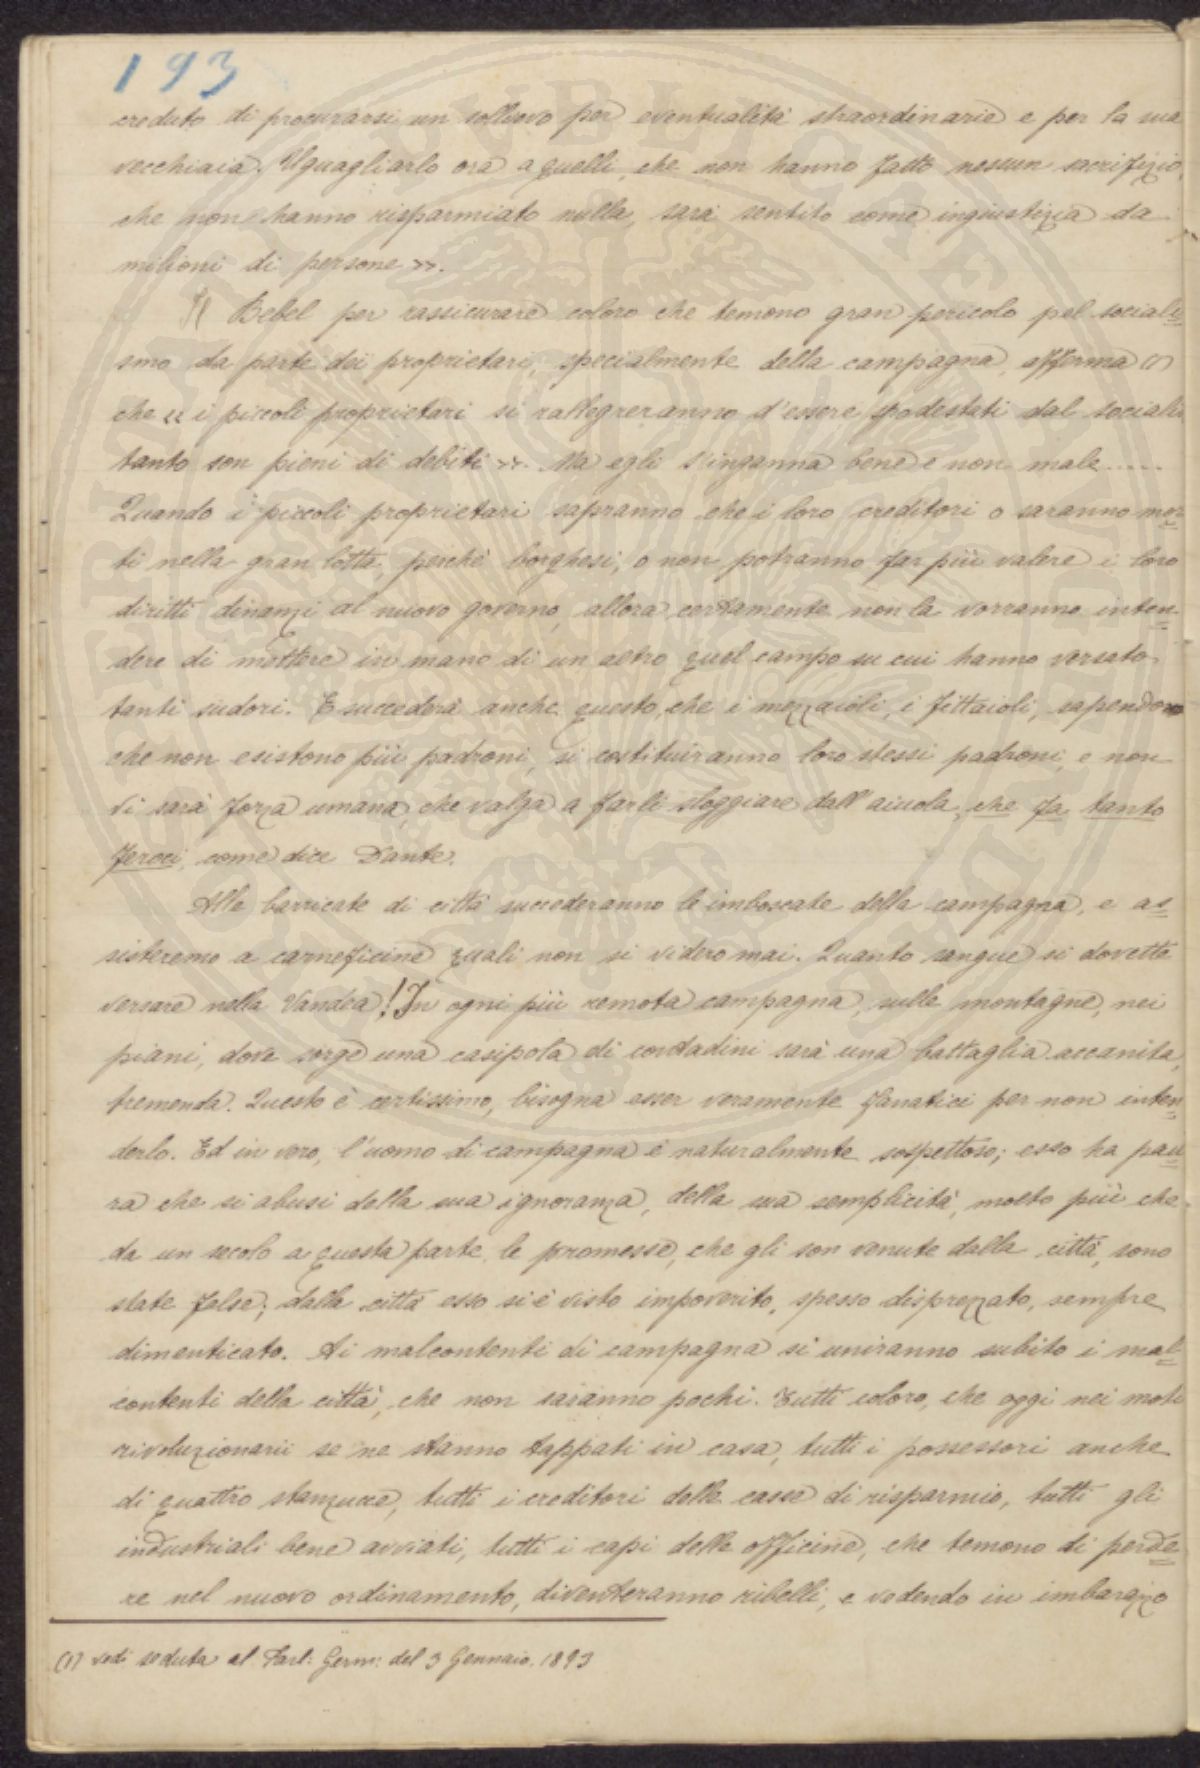 193
creduto di procurarsi un sollievo per eventualità straordinarie e per la sua
vecchiaia. Uguagliarlo ora a quelli, che non hanno fatto nessun sacrifizio,
che non hanno risparmiato nulla, sarà sentito come ingiustizia da
milioni di persone >>.
Il Bebel per rassicurare coloro che temono gran pericolo pel sociali=
smo da parte dei proprietari, specialmente della campagna, afferma (1)
che << i piccoli proprietari si rallegreranno d'essere spodestati dal sociali
tanto son pieni di debiti >>. Ma egli s'inganna bene e non male.....
Quando i piccoli proprietari sapranno che i loro creditori o saranno mor=
ti nella gran lotta, perchè borghesi, o non potranno far più valere i loro
diritti dinanzi al nuovo governo, allora certamente non la vorranno inten=
dere di mettere in mano di un altro quel campo su cui hanno versato
tanti sudori. E succederà anche questo, che i mezzaioli, i fittaioli, sapendo
che non esistono più padroni, si costituiranno loro stessi padroni, e non
vi sarà forza umana, che valga a farli sloggiare dall'aiuola, che fa tanto
feroci, come dice Dante.
Alle barricate di città succederanno le imboscate della campagna, e as=
sisteremo a carneficine quali non si videro mai. Quanto sangue si dovette
versare nella Vandea! In ogni più remota campagna, sulle montagne, nei
piani, dove sorge una casipola di contadini sarà una battaglia accanita,
tremenda. Questo è certissimo, bisogna esser veramente fanatici per non inten=
derlo. Ed in vero, l'uomo di campagna è naturalmente sospettoso; esso ha pau=
ra che si abusi della sua ignoranza, della sua semplicità, molto più che
da un secolo a questa parte le promesse, che gli son venute dalla città, sono
state false; dalla città esso si è visto impoverito, spesso disprezzato, sempre
dimenticato. Ai malcontenti di campagna si uniranno subito i mal=
contenti della città, che non saranno pochi. Tutti coloro, che oggi nei moti
rivoluzionarii se ne stanno tappati in casa, tutti i possessori anche
di quattro stanzucce, tutti i creditori delle casse di risparmio, tutti gli
industriali bene avviati, tutti i capi delle officine, che temono di perde=
re nel nuovo ordinamento, diventeranno ribelli, e vedendo in imbarazzo
(1) vedi seduta al Parl: Germ: del 3 Gennaio. 1893